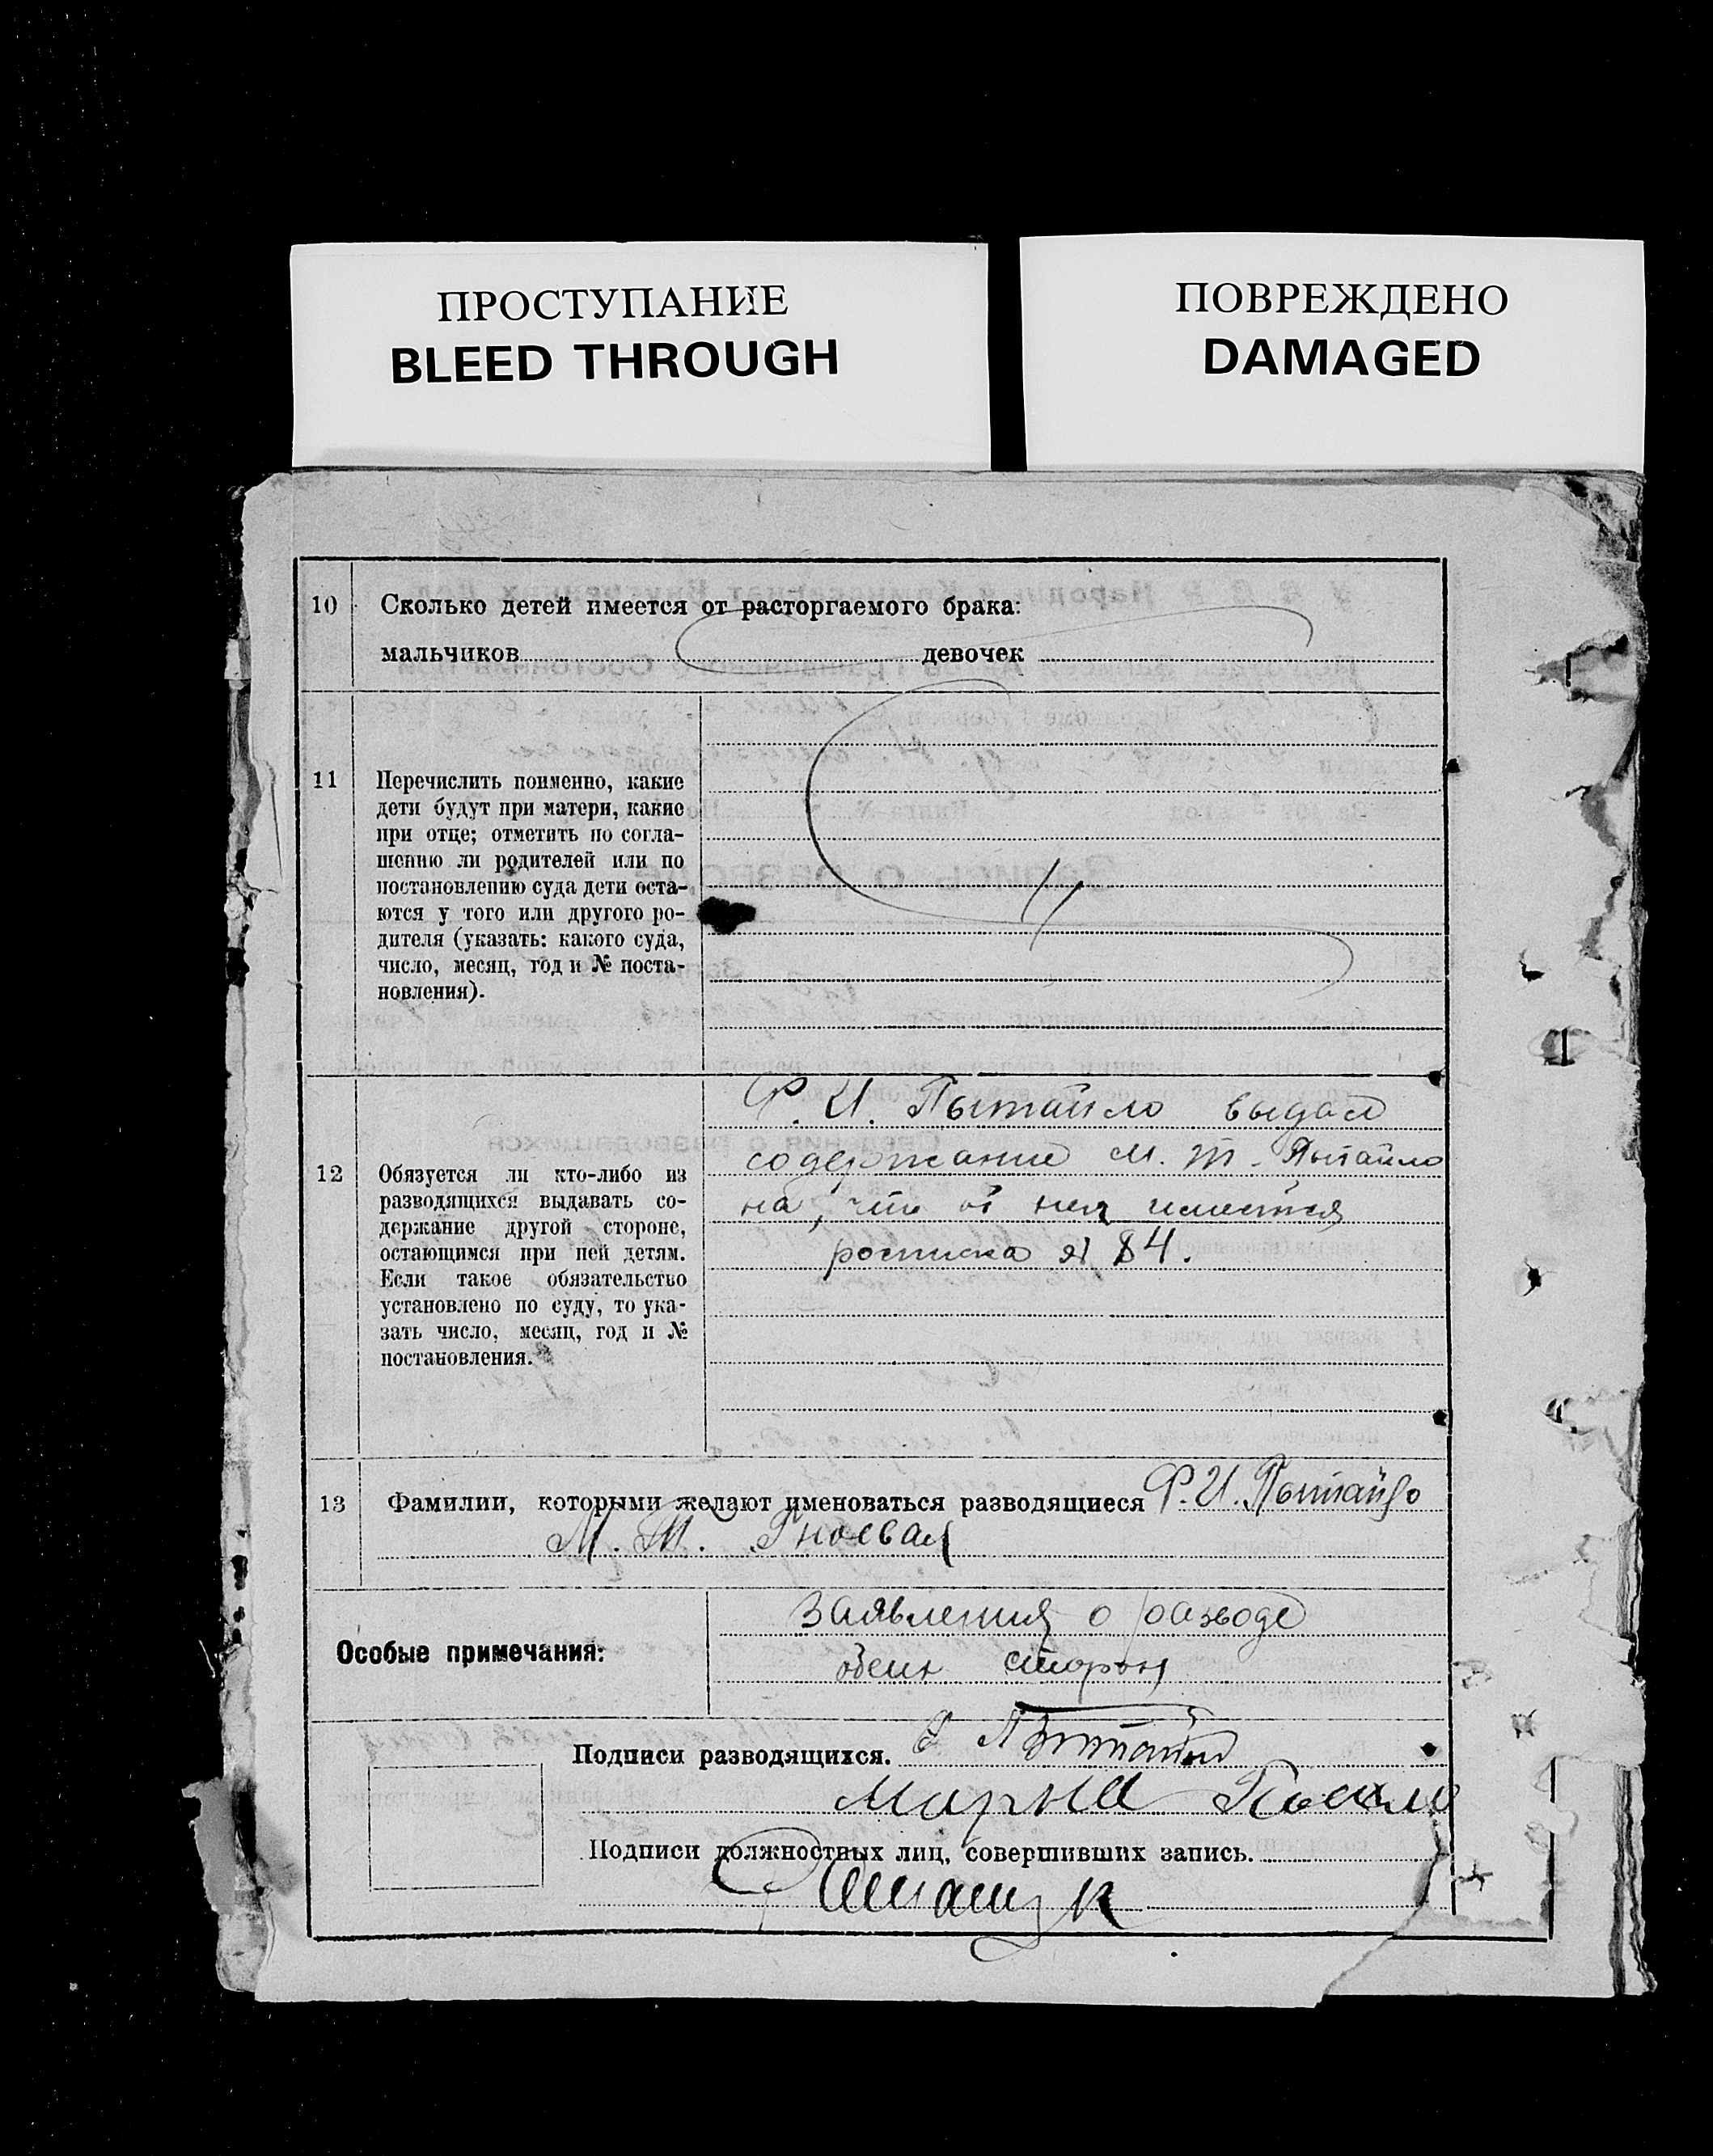 ПРОСТУПАНИЕ
BLEED THROUGH
ПОВРЕЖДЕНО
DAMAGED
10 Сколько детей имеется от расторгаемого брака:
мальчиков девочек
11 Перечислить поименно, какие
дети будут при матери, какие
при отце; отметить по согла-
шению ли родителей или по
постановлению суда дети оста-
ются у того или другого ро-
дителя (указать: какого суда,
число, месяц, год и № поста-
новления).
12 Обязуется ли кто-либо из
разводящихся выдавать со-
держание другой стороне,
остающимся при ней детям.
Если такое обязательство
установлено по суду, то ука-
зать число, месяц, год и №
постановления.
Ф. И. Пытайло выдал
содержание М. Т. Пытайло
на, что от нея имеется
росписка № 84.
13 Фамилии, которыми желают именоваться разводящиеся Ф. И. Пытайло
М. Т. Гноевая
Особые примечания:
Заявления о разводе
обеих сторон
Подписи разводящихся. Пытайло
Марыя
Подписи должностных лиц, совершивших запись.